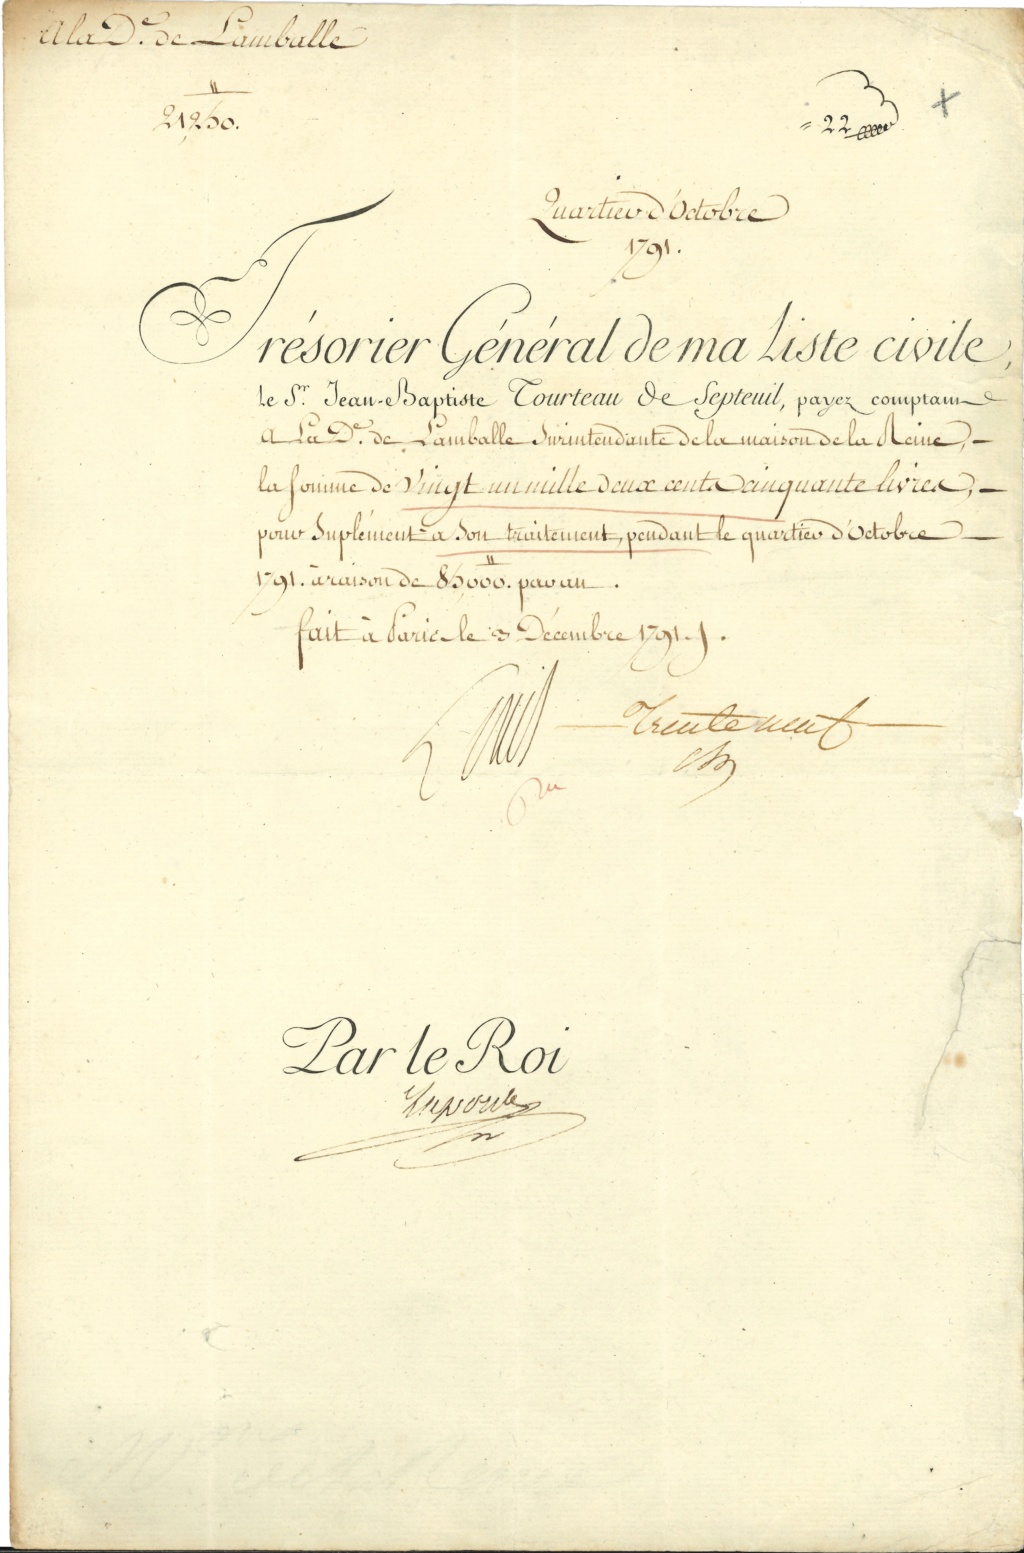 A la De. de Lamballe
₶
21,250.
= 22
Quartier d'Octobre
1791.
Trésorier Général de ma Liste civile,
le Sr. Jean-Baptiste Tourteau De Septeuil, payez comptant
A La De. de Lamballe Surintendante de la maison de la Reine,
la somme de Vingt un mille deux cents cinquante livres,
pour Suplément à Son traitement, pendant le quartier d'Octobre
1791. à raison de 85,000.₶ par an.
fait à Paris le 3 Décembre 1791.
Louis
Trente neuf
Par le Roi
Laporte